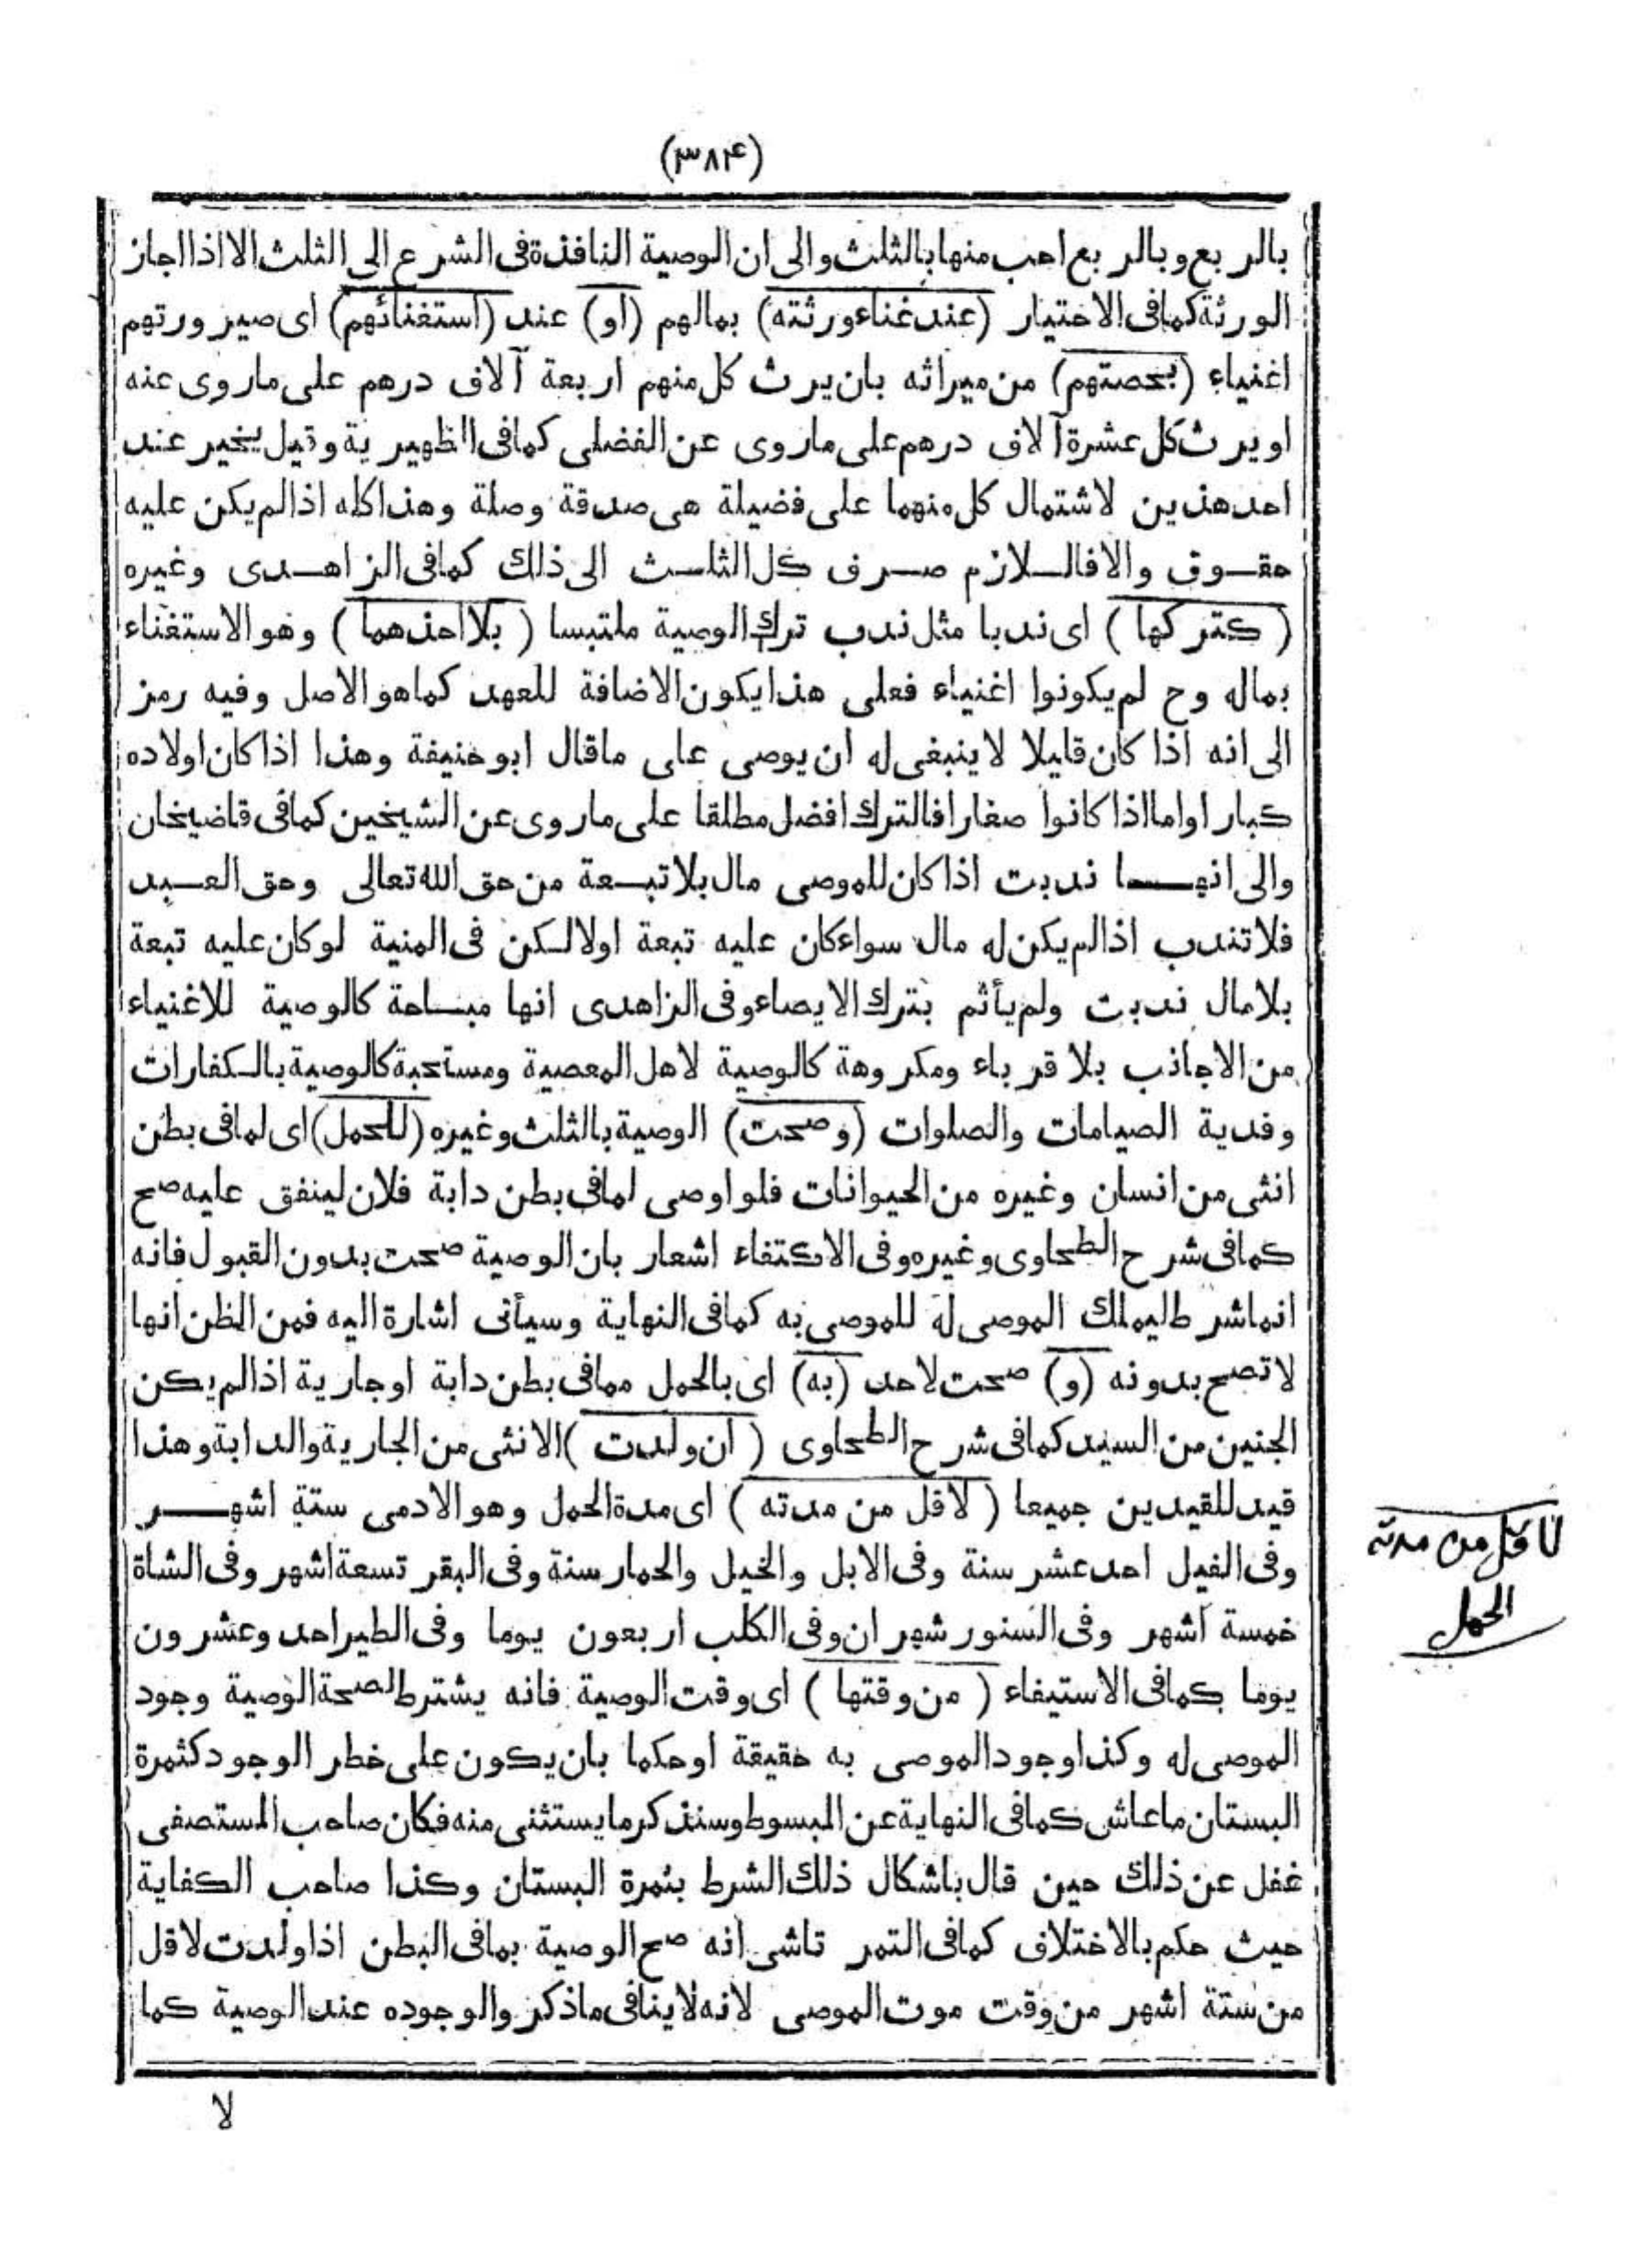 (٣٨۴)
بالربع وبالربع احب منها بالثلث والى ان الوصية النافذة فى الشرع الى الثلث الا اذا اجاز
الورثة كما فى الاختيار (عند غناء ورثته) بمالهم (او) عند (استغنائهم) اى صيرورتهم
اغنياء (بحصتهم) من ميراثه بان يرث كل منهم اربعة آلاف درهم على ما روى عنه
او يرث كل عشرة آلاف درهم على ما روى عن الفضلى كما فى الظهيرية وقيل يخير عند
احد هذين لاشتمال كل منهما على فضيلة هى صدقة وصلة وهذا كله اذا لم يكن عليه
حقوق والا فاللازم صرف كل الثلث الى ذلك كما فى الزاهدى وغيره
(كتركها) اى ندبا مثل ندب ترك الوصية ملتبسا (بلا احدهما) وهو الاستغناء
بماله وح لم يكونوا اغنياء فعلى هذا يكون الاضافة للعهد كما هو الاصل وفيه رمز
الى انه اذا كان قليلا لا ينبغى له ان يوصى على ما قال ابو حنيفة وهذا اذا كان اولاده
كبارا واما اذا كانوا صغارا فالترك افضل مطلقا على ما روى عن الشيخين كما فى قاضيخان
والى انها ندبت اذا كان للموصى مال بلا تبعة من حق الله تعالى وحق العبد
فلا تندب اذا لم يكن له مال سواء كان عليه تبعة اولا لكن فى المنية لو كان عليه تبعة
بلا مال ندبت ولم يأثم بترك الايصاء وفى الزاهدى انها مباحة كالوصية للاغنياء
من الاجانب بلا قرباء ومكروهة كالوصية لاهل المعصية ومستحبة كالوصية بالكفارات
وفدية الصيامات والصلوات (وصحت) الوصية بالثلث وغيره (للحمل) اى لما فى بطن
انثى من انسان وغيره من الحيوانات فلو اوصى لما فى بطن دابة فلان لينفق عليه صح
كما فى شرح الطحاوى وغيره وفى الاكتفاء اشعار بان الوصية صحت بدون القبول فانه
انما شرط ليملك الموصى له للموصى به كما فى النهاية وسيأتى اشارة اليه فمن الظن انها
لا تصح بدونه (و) صحت لاحد (به) اى بالحمل مما فى بطن دابة او جارية اذا لم يكن
الجنين من السيد كما فى شرح الطحاوى (ان ولدت) الانثى من الجارية والدابة وهذا
قيد للقيدين جميعا (لاقل من مدته) اى مدة الحمل وهو الادمى ستة اشهر
وفى الفيل احد عشر سنة وفى الابل والخيل والحمار سنة وفى البقر تسعة اشهر وفى الشاة
خمسة اشهر وفى السنور شهران وفى الكلب اربعون يوما وفى الطير احد وعشرون
يوما كما فى الاستيفاء (من وقتها) اى وقت الوصية فانه يشترط لصحة الوصية وجود
الموصى له وكذا وجود الموصى به حقيقة او حكما بان يكون على خطر الوجود كثمرة
البستان ما عاش كما فى النهاية عن المبسوط وسنذكر ما يستثنى منه فكان صاحب المستصفى
غفل عن ذلك حين قال باشكال ذلك الشرط بثمرة البستان وكذا صاحب الكفاية
حيث حكم بالاختلاف كما فى التمرتاشى انه صح الوصية بما فى البطن اذا ولدت لاقل
من ستة اشهر من وقت موت الموصى لانه لا ينافى ما ذكر والوجوده عند الوصية كما
لا
لاقل من مدته
الحمل